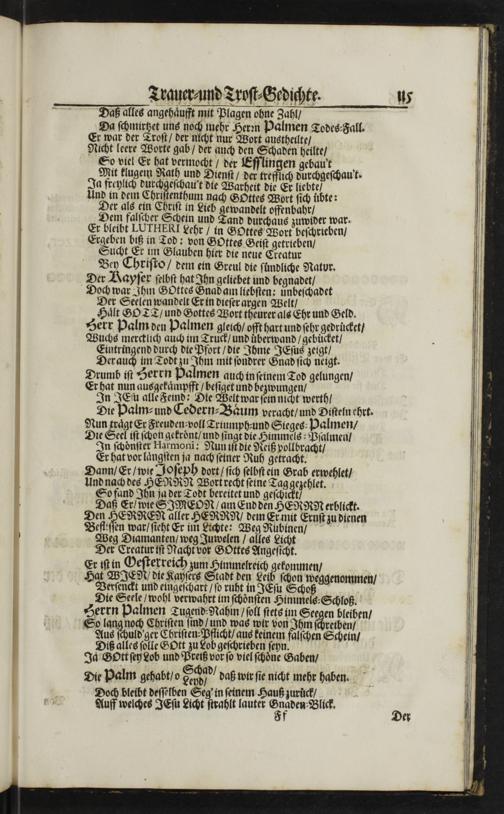 Trauer-und Trost-Gedichte. 115
Daß alles angehäufft mit Plagen ohne Zahl/
Da schmirtzet uns noch mehr Herrn Palmen Todes-Fall.
Er war der Trost/ der nicht nur Wort austheilte/
Nicht leere Worte gab/ der auch den Schaden heilte/
So viel Er hat vermocht/ der Efflingen gebau't
Mit klugem Rath und Dienst/ der trefflich durchgeschau't.
Ja freylich durchgeschau't die Warheit die Er liebte/
Und in dem Christenthum nach GOttes Wort sich übte:
Der als ein Christ in Lieb gewandelt offenbahr/
Dem falscher Schein und Tand durchaus zuwider war.
Er bleibt LUTHERI Lehr/ in GOttes Wort beschrieben/
Ergeben biß in Tod: von GOttes Geist getrieben/
Sucht Er im Glauben hier die neue Creatur
Bey Christo/ dem ein Greul die sündliche Natur.
Der Kayser selbst hat Ihn geliebet und begnadet/
Doch war Ihm GOttes Gnad am liebsten: unbeschadet
Der Seelen wandelt Er in dieser argen Welt/
Hält GOTT/ und Gottes Wort theurer als Ehr und Geld.
Herr Palm den Palmen gleich/ offt hart und sehr gedrücket/
Wuchs mercklich auch im Truck/ und überwand/ gebücket/
Eintringend durch die Pfort/ die Ihme JEsus zeigt/
Der auch im Todt zu Ihm mit sondrer Gnad sich neigt.
Drumb ist Herrn Palmen auch in seinem Tod gelungen/
Er hat nun ausgekämpfft/ besiget und bezwungen/
In JEsu alle Feind: Die Welt war sein nicht werth/
Die Palm- und Cedern-Bäum veracht/ und Disteln ehrt.
Nun trägt Er Freuden-voll Triumph-und Sieges-Palmen/
Die Seel ist schon gekrönt/ und singt die Himmels-Psalmen/
In schönster Harmoni: Nun ist die Reiß vollbracht/
Er hat vor längsten ja nach seiner Ruh getracht.
Dann/ Er/ wie Joseph dort/ sich selbst ein Grab erwehlet/
Und nach des HERRN Wort recht seine Tag gezehlet.
So fand Ihn ja der Todt bereitet und geschickt/
Daß Er/ wie SIMEON/ am End den HERRN erblickt.
Den HERREN aller HERRN/ dem Er mit Ernst zu dienen
Beflissen war/ sieht Er im Lichte: Weg Rubinen/
Weg Diamanten/ weg Juwelen/ alles Licht
Der Creatur ist Nacht vor GOttes Angesicht.
Er ist in Oesterreich zum Himmelreich gekommen/
Hat WIEN/ die Kaysers Stadt den Leib schon weggenommen/
Versenckt und eingeschart/ so ruht in JEsu Schoß
Die Seele/ wohl verwahrt im schönsten Himmels-Schloß.
Herrn Palmen Tugend-Nahm/ soll stets im Seegen bleiben/
So lang noch Christen sind/ und was wir von Ihm schreiben/
Aus schuld'ger Christen-Pflicht/ aus keinem falschen Schein/
Diß alles solle GOtt zu Lob geschrieben seyn.
Ja GOtt sey Lob und Preiß vor so viel schöne Gaben/
Die Palm gehabt/ o Schad/ daß wir sie nicht mehr haben.
Leyd/
Doch bleibt desselben Seg' in seinem Hauß zurück/
Auff welches JEsu Licht strahlt lauter Gnaden-Blick.
Ff Der